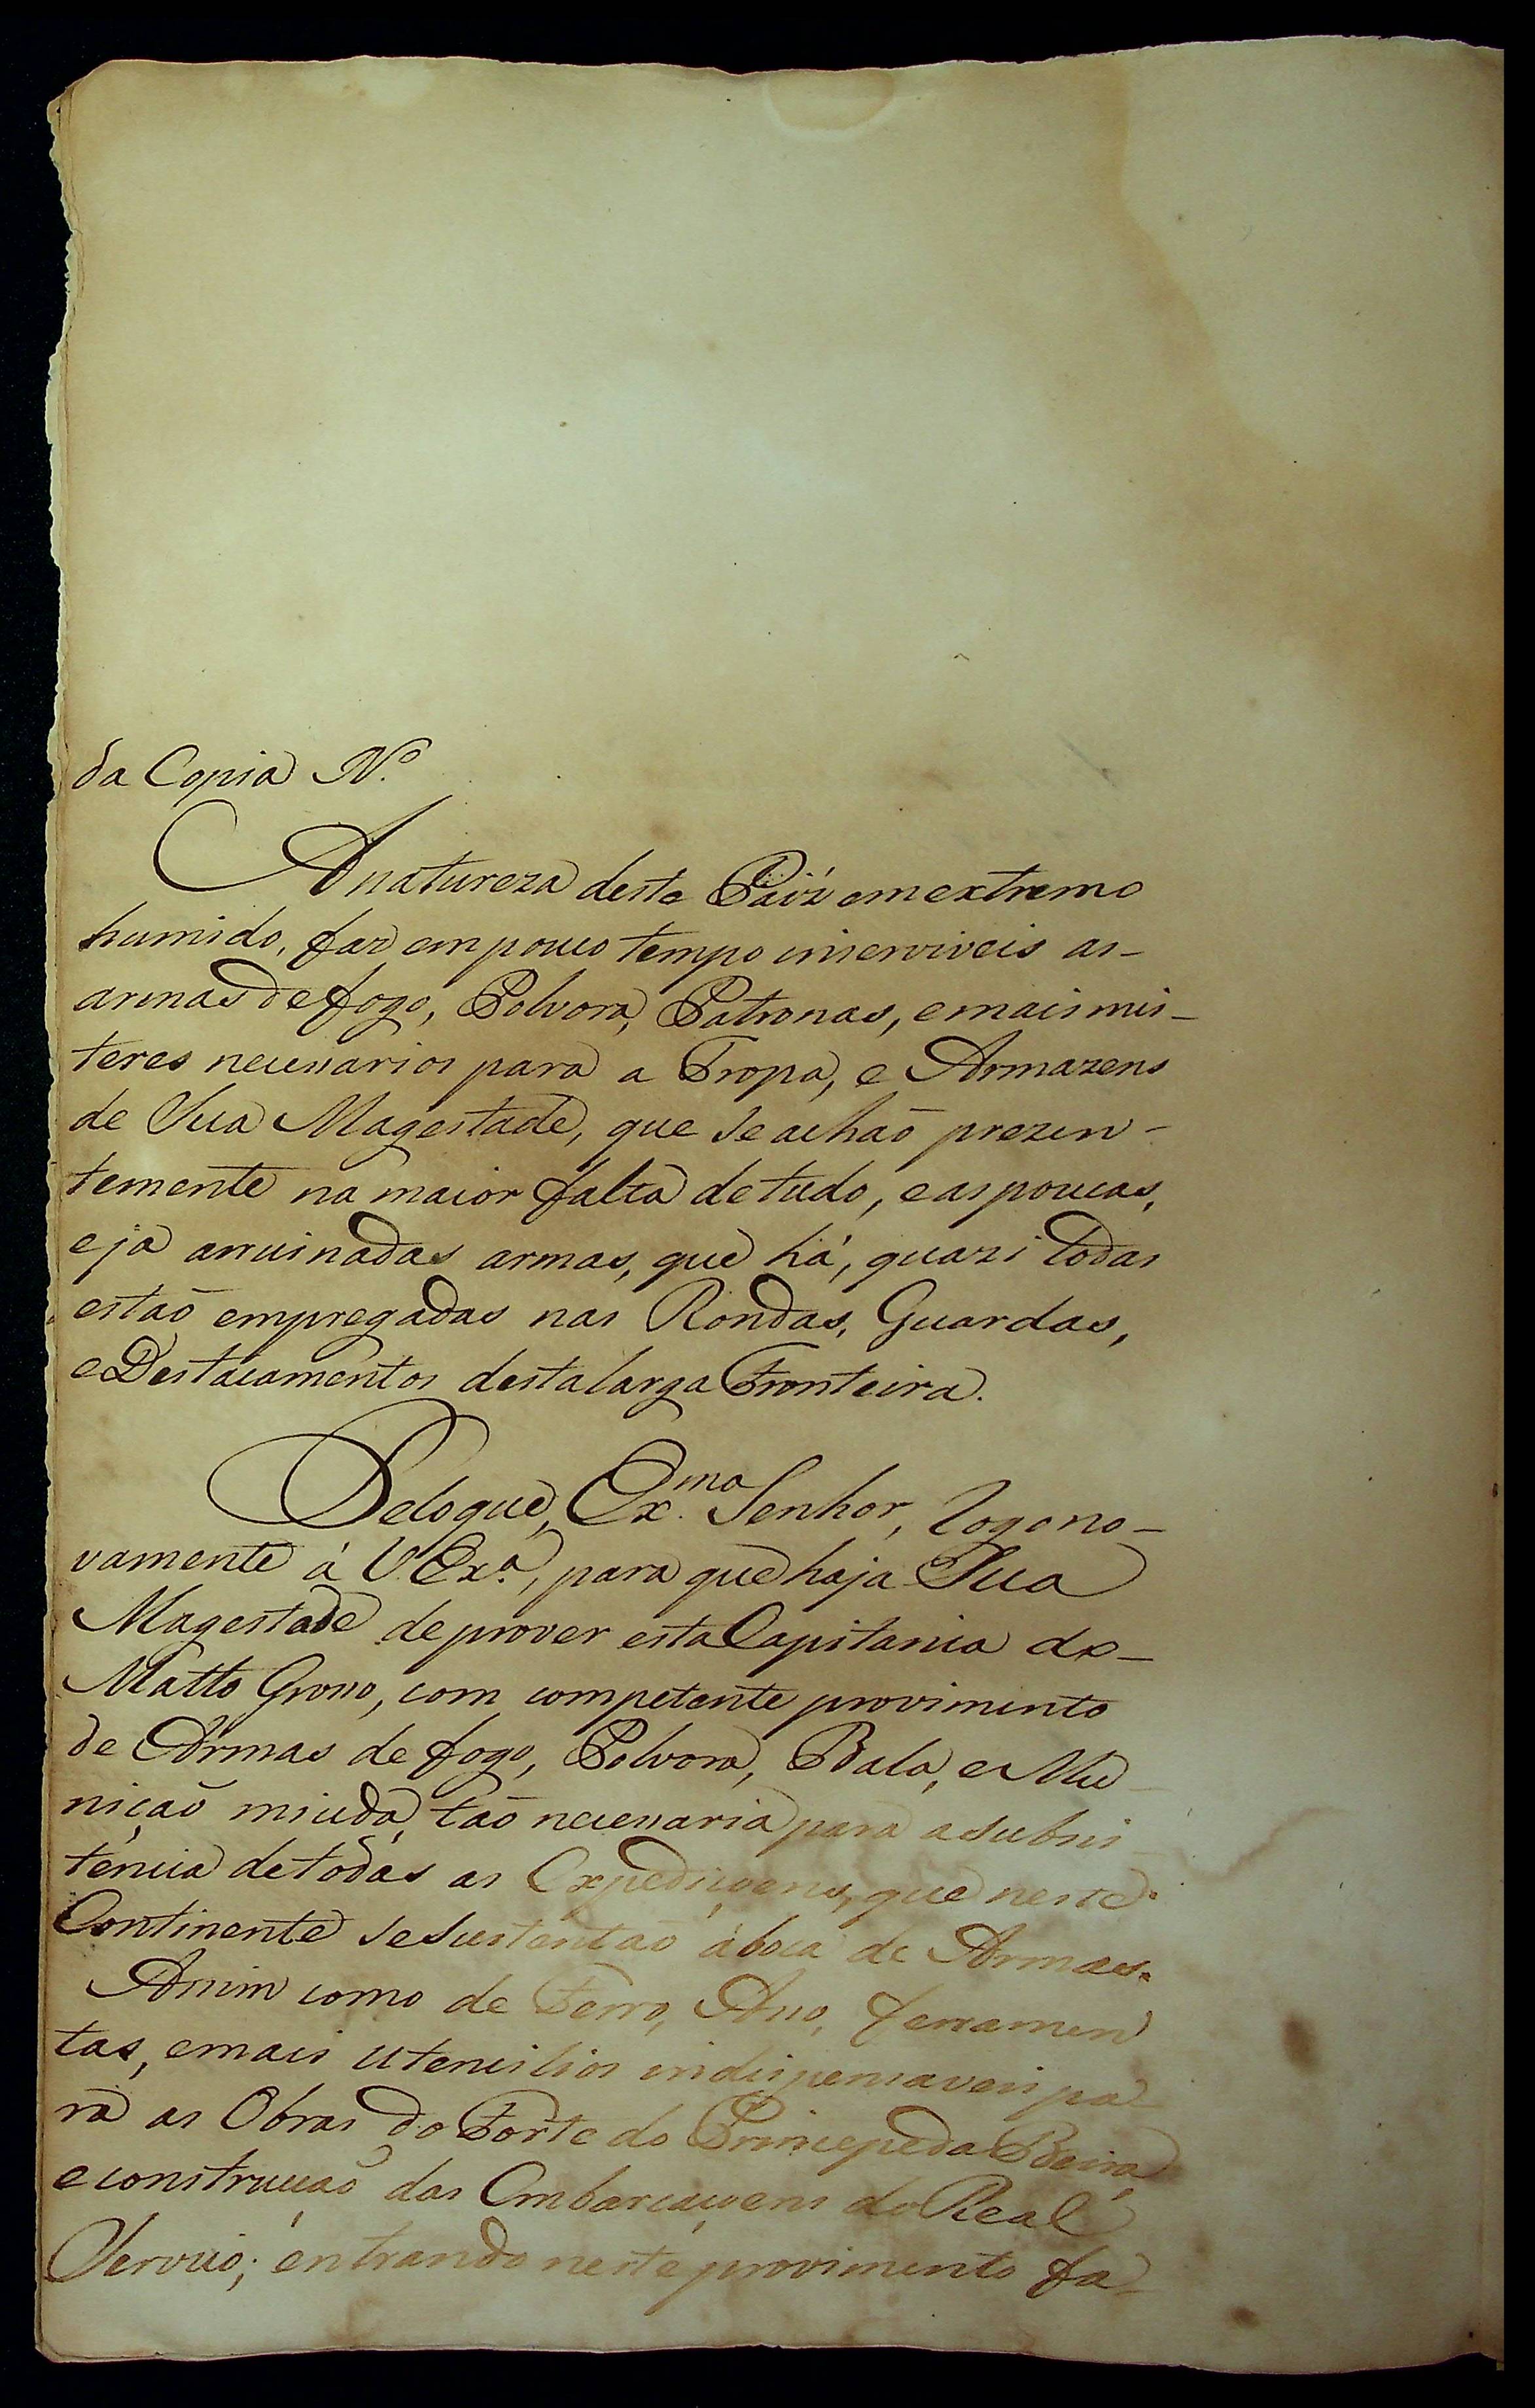 da Copia N.º
A natureza deste Païz em extremo
humido, faz em pouco tempo inserviveis as-
armas de fogo, Polvora, Patronas, e mais mis-
teres necessarios para a Tropa, e Armazens
de Sua Magestade, que se achaõ prezen-
temente na maior falta de tudo, e as poucas,
e já arruinadas armas, que há, quazi todas
estaõ empregadas nas Rondas, Guardas,
e Destacamentos desta larga Fronteira.
Pelo que, Ex.mo Senhor, rogo no-
vamente á V. Ex.ª, para que haja Sua
Magestade de prover esta Capitania do-
Matto Grosso, com competente provimento
de Armas de fogo, Polvora, Bala, e Mu-
niçaõ miuda, taõ necessaria para a subsis-
tencia de todas as Expediçoens, que neste
Continente se sustentaõ á boca de Armas.
Assim como de Ferro, Aço, ferramen
tas, e mais utencilios indispensaveis pa-
ra as Obras do Forte do Principe da Beira
e construcçaõ das Embarcaçoens do Real
Serviço; entrando neste provimento fa-